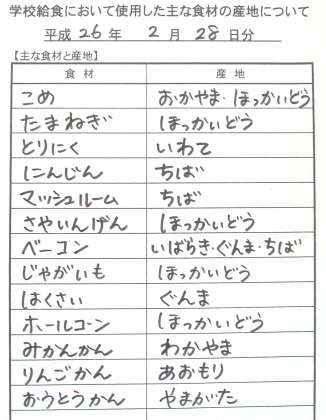 学校給食において使用した主な食材の産地について
平成 26 年 2 月 28 日分
【主な食材と産地】
食 材 産 地
こめ おかやま・ほっかいどう
たまねぎ ほっかいどう
とりにく いわて
にんじん ちば
マッシュルーム ちば
さやいんげん ほっかいどう
ベーコン いばらき・ぐんま・ちば
じゃがいも ほっかいどう
はくさい ぐんま
ホールコーン ほっかいどう
みかんかん わかやま
りんごかん あおもり
おうとうかん やまがた